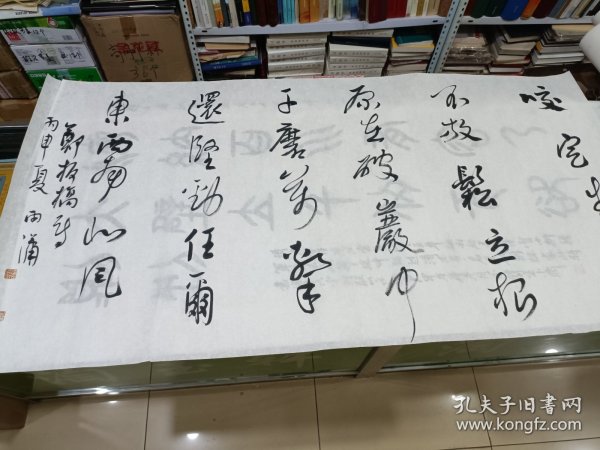 咬定青
不放鬆立根
原在破巖中
千磨萬擊
還堅勁任爾
東西南北風
鄭板橋詩
丙申夏雨蒲
孔夫子旧书网
www.kongfz.com